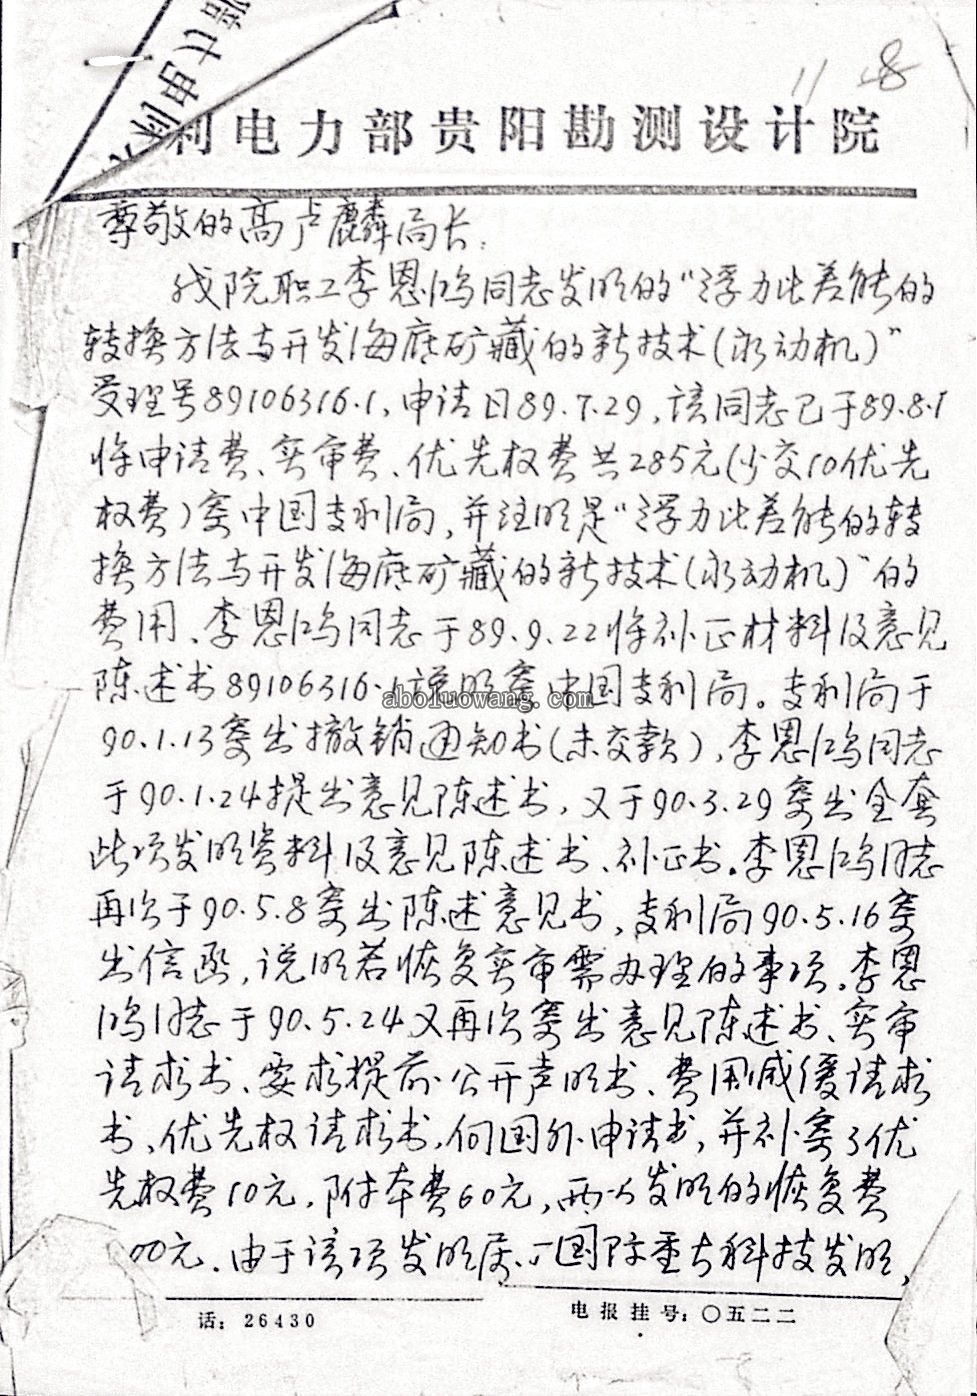 11 8
利电力部贵阳勘测设计院
尊敬的高卢麟局长:
我院职工李恩鸿同志发明的“浮力比差能的
转换方法与开发海底矿藏的新技术(永动机)”
受理号89106316.1,申请日89.7.29,该同志已于89.8.1
将申请费、实审费、优先权费共285元(少交10优先
权费)寄中国专利局,并注明是“浮力比差能的转
换方法与开发海底矿藏的新技术(永动机)”的
费用、李恩鸿同志于89.9.22将补正材料及意见
陈述书89106316.1说明寄中国专利局。专利局于
aboluowang.com
90.1.13寄出撤销通知书(未交款),李恩鸿同志
于90.1.24提出意见陈述书,又于90.3.29寄出全套
此项发明资料及意见陈述书、补正书。李恩鸿同志
再次于90.5.8寄出陈述意见书,专利局90.5.16寄
出信函,说明若恢复实审需办理的事项。李恩
鸿同志于90.5.24又再次寄出意见陈述书、实审
请求书、要求提前公开声明书、费用减缓请求
书、优先权请求书,向国外申请书,并补寄了优
先权费10元,附本费60元,两次发明的恢复费
00元.由于该项发明属于国际重大科技发明,
话:26430
电报挂号:〇五二二